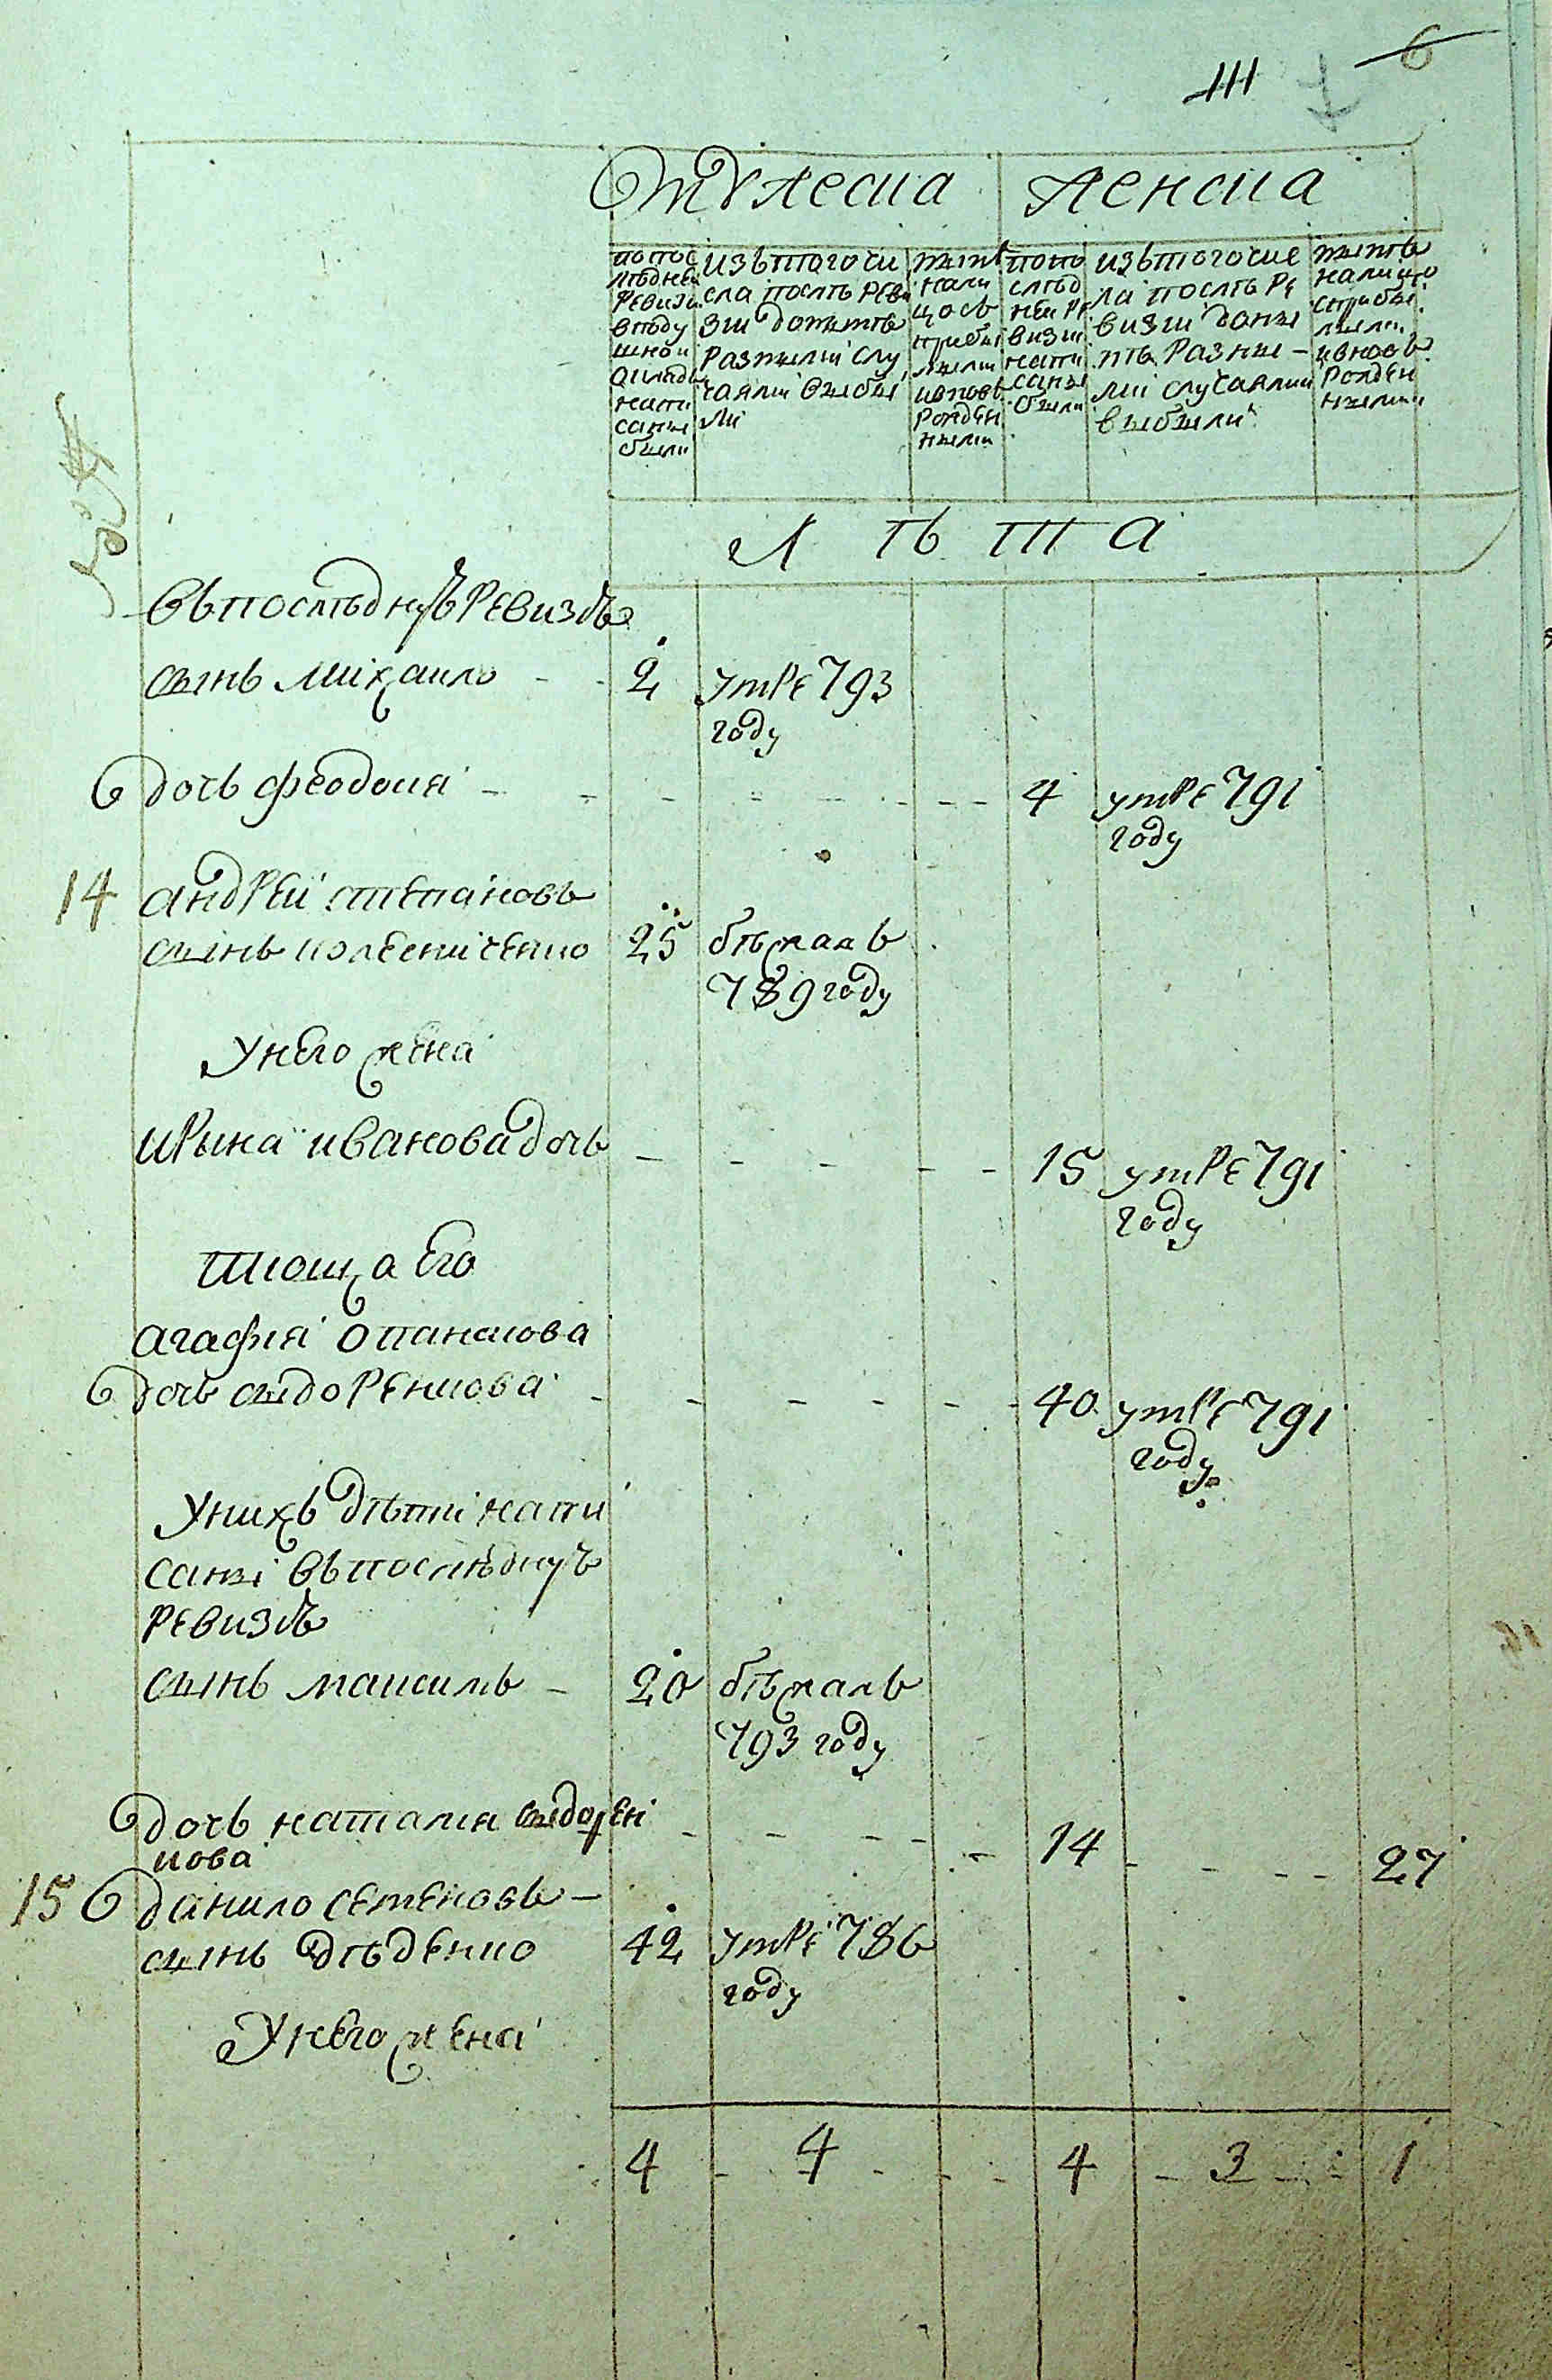 6
Мужеска Женска
по пос
лѣдней
ревизи
в поду
шной
окладъ
напи
саны
были
изъ того чи
сла послѣ реви
зіи до ныне
разными слу
чаями выбы
ли
ныне
нали
цо съ
прибы
лыми
и вновь
рожден
ными
по по
слѣд
ней ре
визіи
напи
саны
были
изъ того чис
ла послѣ ре
визіи до ны
нѣ разны-
ми случаями
выбыли
ныне
налицо
с прибы
лыми
и вновь
рожден
ными
Л ѣ т а
въ послѣднуъ ревизѣ
сынъ Михаило - - 2 умре 793
году
дочь Феодосия - - - - - 4 умре 791
году
14 Андрей Степановъ
сынъ Колесниченко 25 бѣжалъ
789 году
У него жена
Ирына Иванова дочь - - - - 15 умре 791
году
Тюща его
Агафия Опанасова
дочь Сыдоренкова - - - - - 40 умре 791
году
У нихъ дѣти напи
саны въ послѣднуъ
ревизѣ
сынъ Максимъ - 20 бѣжалъ
793 году
дочь Наталия Сыдорен
кова - - - - 14 - - - 27
15 Данило Семеновъ -
сынъ Дѣденко 42 умре 786
году
У него жена
4 - 4 - - - 4 - 3 - - 1